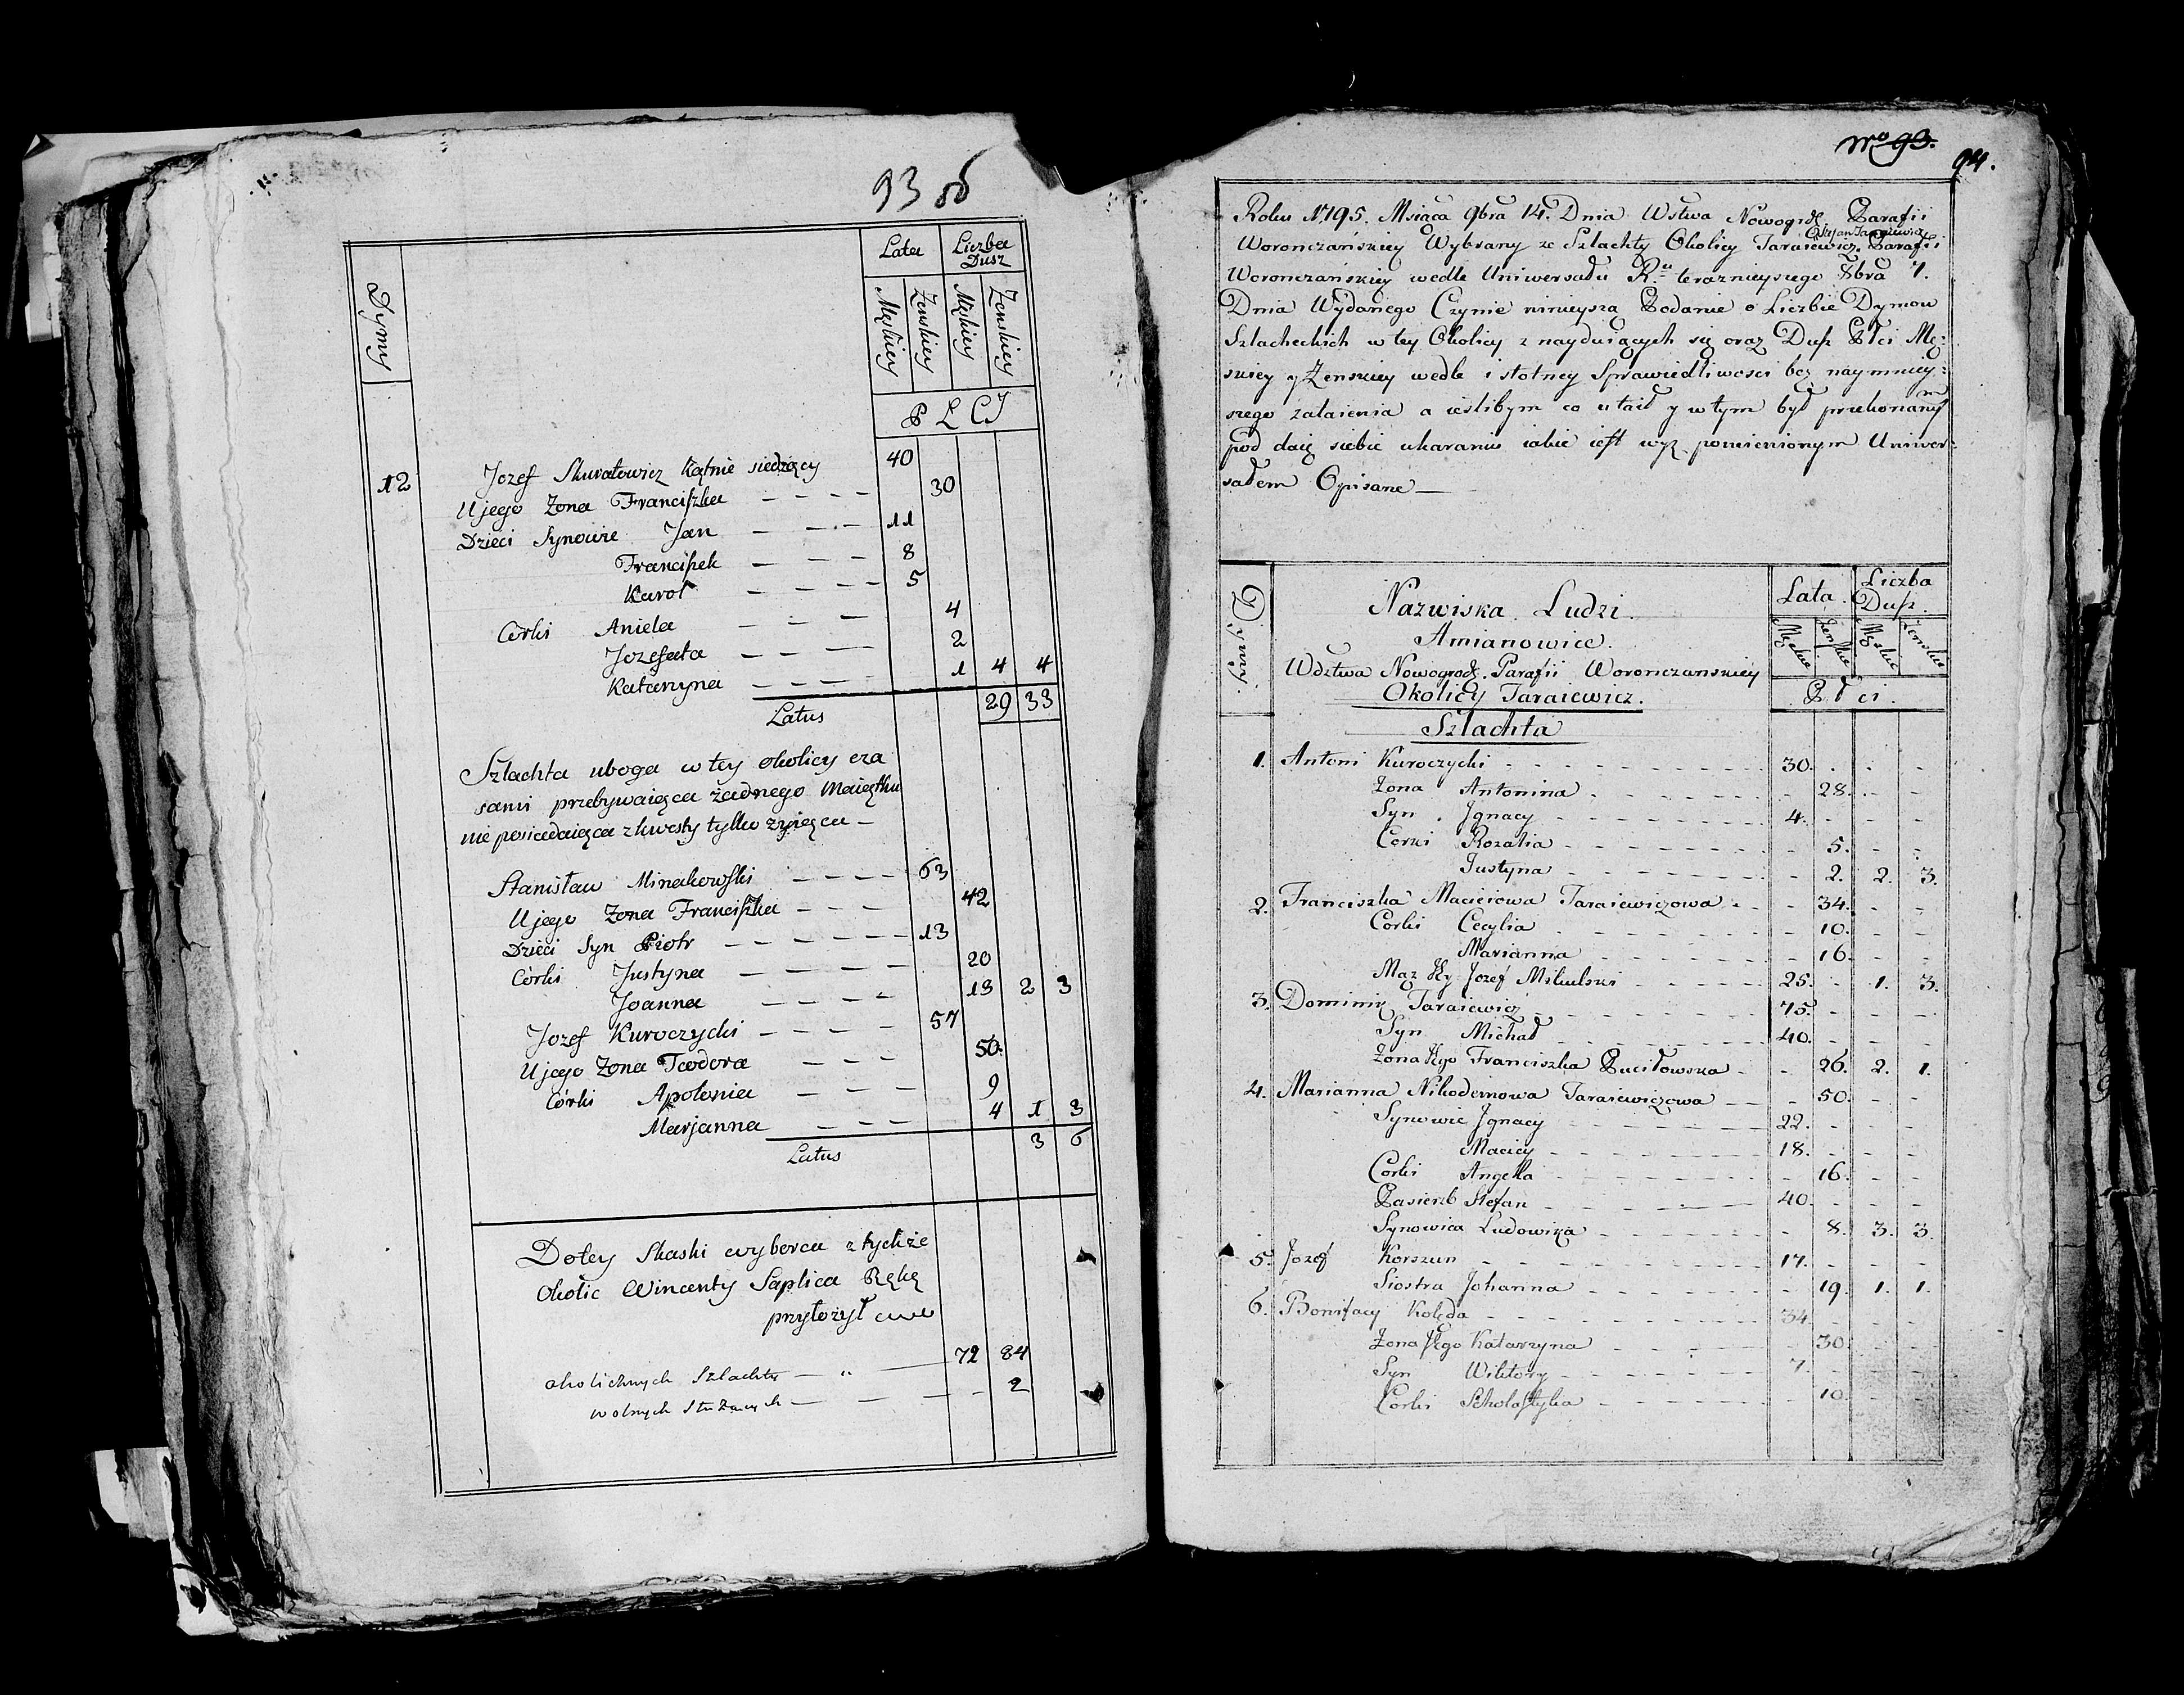 93 об
Dymy
Lata
Liczba Dusz
Męskiey
Zenskiey
Męskiey
Zenskiey
P Ł C J
12 Jozef Skuratowicz kątnie siedzący 40
U jego Zona Franciszka 30
Dzieci Synowie Jan 11
Franciszek 8
Karol 5
Córki Aniela 4
Jozefata 2
Katarzyna 1 4 4
Latus 29 33
Szlachta uboga w tey okolicy cza
sami przebywaiąca żadnego Maiątku
nie posiadaiąca z kwesty tylko żyiąca
Stanisław Minakowski 63
U jego Zona Franciszka 42
Dzieci Syn Piotr 13
Córki Justyna 20
Joanna 13 2 3
Jozef Kuroczycki 57
U jego Zona Teodora 50.
Córki Apolonia 9
Marjanna 4 1 3
Latus 3 6
Do tey Skaski wyborca z tychże
Okolic Wincenty Saplica Rękę
przyłożył
72 84
okolicznych Szlachty „
wolnych służących 2
No 93.
94.
Roku 1795. Msiąca 9bra 14. Dnia Wstwa Nowogrd. Parafii
Woronczańskiey Wybrany ze Szlachty Okolicy Taraiewicz. Parafii
Stefan Taraiewicz
Woronczańskiey wedle Uniwersału Ru teraznieyszego 8bra 7.
Dnia Wydanego Czynie ninieyszą Podanie o Liczbie Dymow
Szlacheckich w tey Okolicy znayduiących się oraz Dusz Płci Mę:
skiey y Zenskiey wedle istotney Sprawiedliwosci bez naymniey:
szego zataienia a ieslibym co utaił y w tym był przekonanym
pod daię siebie ukaraniu iakie iest wyż pomienionym Uniwer:
sałem Opisane
Dymy.
Nazwiska Ludzi.
Amianowice.
Wdztwa Nowogrodz. Parafii Woronczanskiey
Okolicy Taraiewicz.
Szlachta
Lata.
Liczba Dusz.
Męskie
Zenskie
Męskie
Zenskie
Płci.
1. Antoni Kuroczycki 30.
Zona Antonina 28.
Syn. Jgnacy 4.
Corki Rozalia 5.
Justyna 2. 2. 3.
2. Franciszka Macieiowa Taraiewiczowa 34.
Corki Cecylia 10.
Marianna 16.
Mąz Jey Jozef Mikulski 25. 1. 3.
3. Dominik Taraiewicz 75.
Syn Michał 40.
Zona Jego Franciszka Puciłowska 26. 2. 1.
4. Marianna Nikodemowa Taraiewiczowa 50.
Synowie Jgnacy 22.
Maciey 18.
Corki Angela 16.
Pasierzb Stefan 40.
Synowica Ludowika 8. 3. 3.
5. Jozef Korszun 17.
Siostra Johanna 19. 1. 1.
6. Bonifacy Kolęda 34.
Zona Jego Katarzyna 30.
Syn Wiktory 7.
Corki Scholastyka 10.